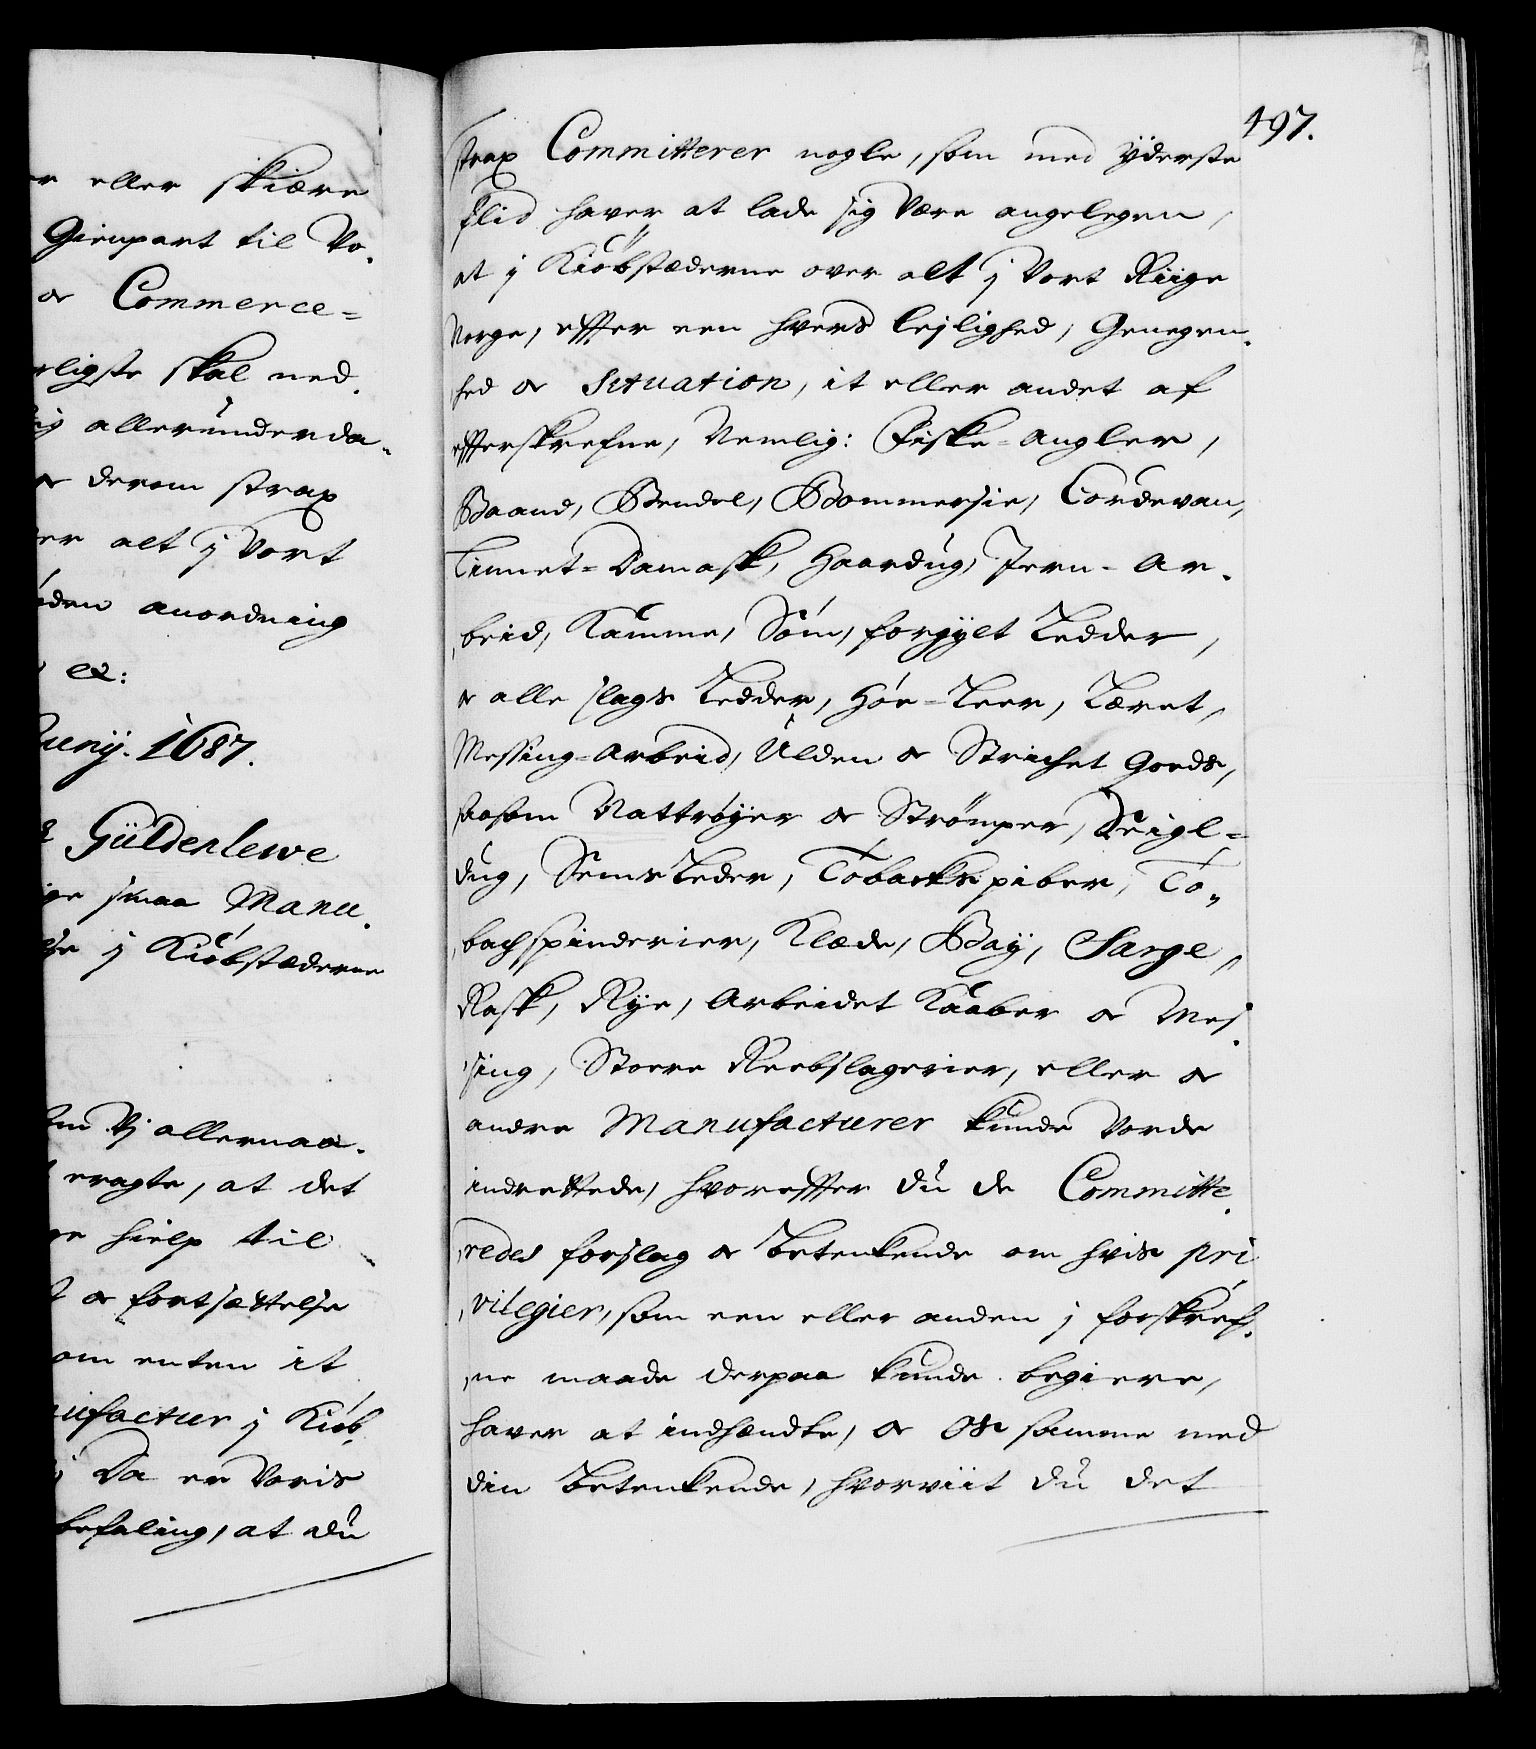 er eller skiære
Gienpart til Vo-
oc Commerce=
rligste skal ned
sig allerunderda-
oc derom strax
ver alt j Vort
anordning
Junij. 1687.
Güldenlewe
ige smaa Manu-
lse j Kiøbstæderne
som Vj allernaa-
eragte, at det
hielp til
oc fortsættelse
om enten it
nufactur j Kiøb-
Da er Voris
befaling, at du
497.
strax Committerer nogle, som med yderste
flid hafver at lade sig være angelegen,
at j Kiøbstæderne over alt j Vort Riige
Norge, effter een hvers lejlighed, Genegen-
hed oc Situation, it eller andet af
effterskrefne, Nemlig: Fiske-Angler,
Baand, Bendel, Bommersie, Cordevan,
Linnet-Damask, Haardug, Jern-Ar-
beid, Kamme, Søm, forgylt Ledder,
oc alle slags Ledder, Hør-Leer, Læret,
Messing-Arbeid, Ulden oc Strichet Goeds,
saasom Nattrøyer oc Strømper, Seigl-
dug, Sems Leder, Tobacks piber, To-
bachspinderier, Klæde, Bay, Sarge,
Rask, Rye, Arbeidet Kaaber oc Mes-
sing, Store Reebslagerier, eller oc
andre Manufacturer kunde vorde
indrettede, hvoreffter du de Committe-
redes forslag oc betenkende om hvis pri
vilegier, som een eller anden j forskref-
ne maade derpaa kunde begiere,
haver at indhændte, oc Os samme med
din betenkende, hvorviit du det